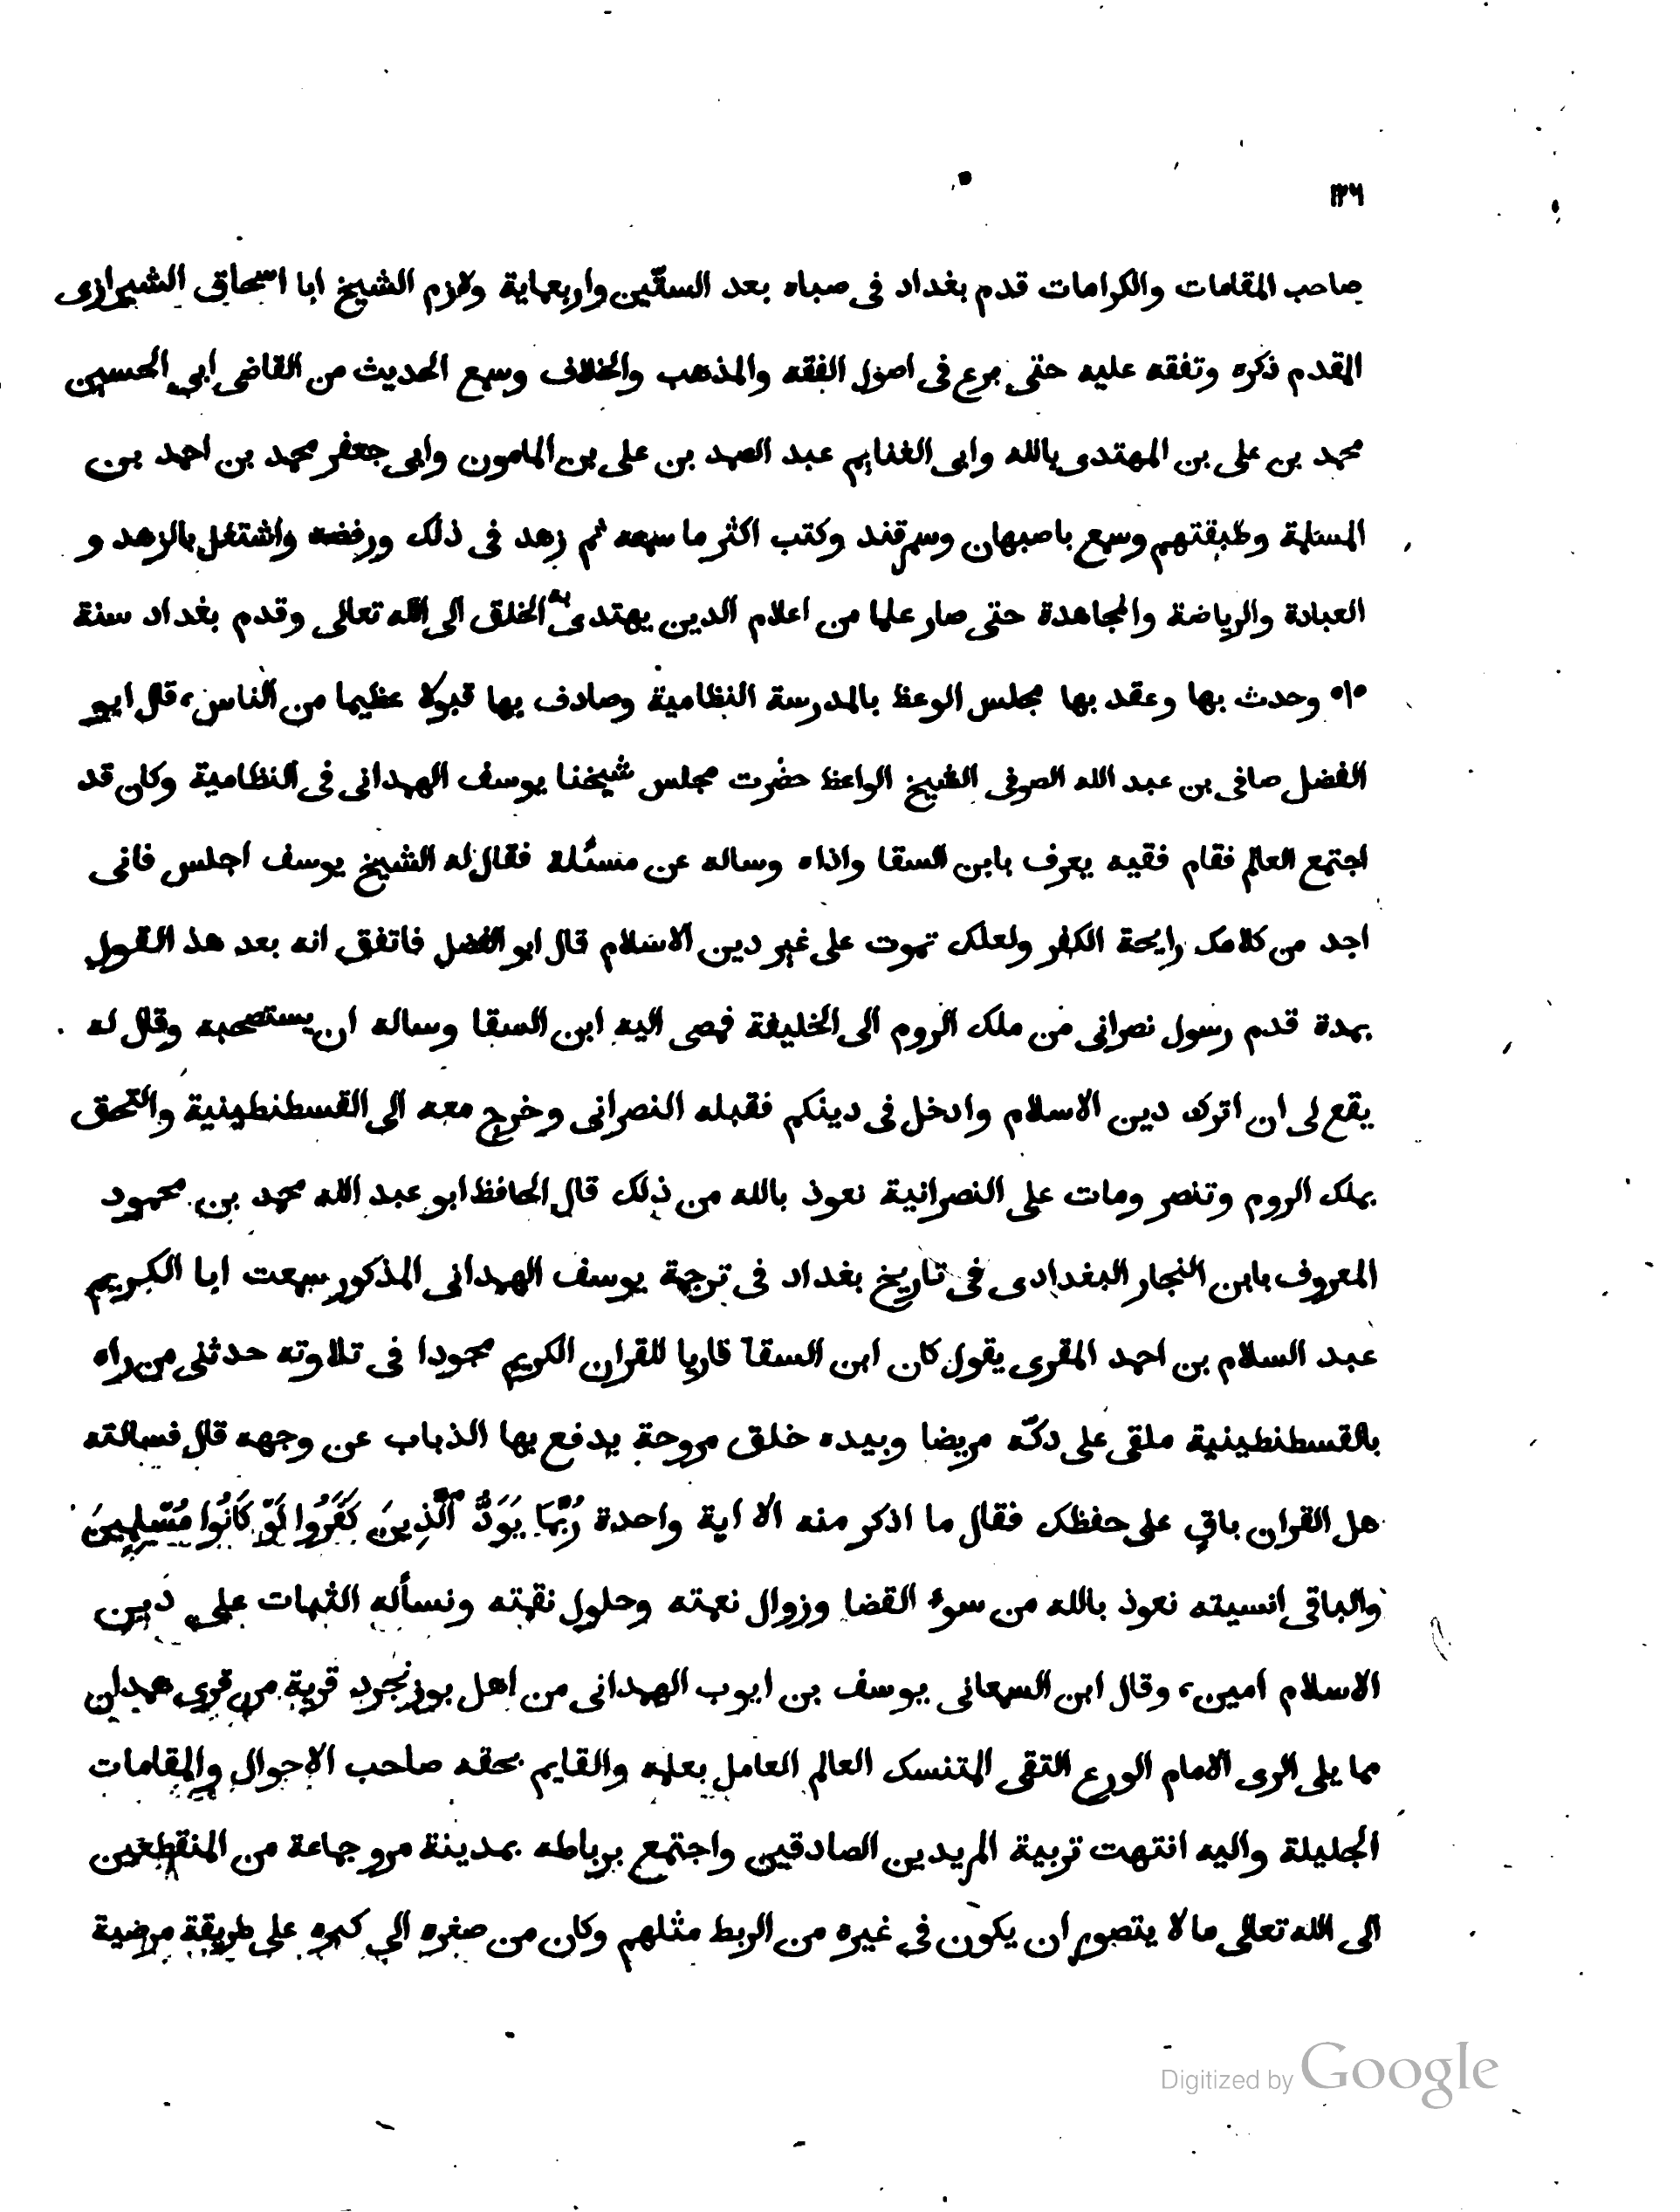 ١٢٦
صاحب المقامات والكرامات قدم بغداد فى صباه بعد الستّين واربعماية ولازم الشيخ ابا اسحاق الشيرازى
المقدم ذكره وتفقه عليه حتى برع فى اصول الفقه والمذهب والخلاف وسمع الحديث من القاضى ابى الحسين
محمد بن على بن المهتدى بالله وابى الغنايم عبد الصمد بن على بن المامون وابى جعفر محمد بن احمد بن
المسلمة وطبقتهم وسمع باصبهان وسمرقند وكتب اكثر ما سمعه ثم زهد فى ذلك ورفضه واشتغل بالزهد و
العبادة والرياضة والمجاهدة حتى صار علما من اعلام الدين يهتدى به الخلق الى الله تعالى وقدم بغداد سنة
٥١٥ وحدث بها وعقد بها مجلس الوعظ بالمدرسة النظامية وصادف بها قبولا عظيما من الناس، قال ابو
الفضل صافى بن عبد الله الصوفى الشيخ الواعظ حضرت مجلس شيخنا يوسف الهمدانى فى النظامية وكان قد
اجتمع العالم فقام فقيه يعرف بابن السقا واذاه وساله عن مسئلة فقال له الشيخ يوسف اجلس فانى
اجد من كلامك رايحة الكفر ولعلك تموت على غير دين الاسلام قال ابو الفضل فاتفق انه بعد هذ القول
بمدة قدم رسول نصرانى من ملك الروم الى الخليفة فمصى اليه ابن السقا وساله ان يستصحبه وقال له
يقع لى ان اترك دين الاسلام وادخل فى دينكم فقبله النصرانى وخرج معه الى القسطنطينية والتحق
بملك الروم وتنصر ومات على النصرانية نعوذ بالله من ذلك قال الحافظ ابو عبد الله محمد بن محمود
المعروف بابن النجار البغدادى فى تاريخ بغداد فى ترجمة يوسف الهمدانى المذكور سمعت ابا الكريم
عبد السلام بن احمد المقرى يقول كان ابن السقا قاريا للقران الكريم مجودا فى تلاوته حدثنى من راه
بالقسطنطينية ملقى على دكّه مريضا وبيده خلق مروحة يدفع بها الذباب عن وجهه قال فسالته
هل القران باقٍ على حفظك فقال ما اذكر منه الا اية واحدة رُبَّمَا يَوَدُّ ٱلَّذِينَ كَفَرُوا لَوْ كَانُوا مُسْلِمِينَ
والباقى انسيته نعوذ بالله من سوء القضا وزوال نعمته وحلول نقمته ونسأله الثبات على دين
الاسلام امين، وقال ابن السمعانى يوسف بن ايوب الهمدانى من اهل بوزنجرد قرية من قرى همدان
مما يلى الرى الامام الورع التقى المتنسك العالم العامل بعلمه والقايم بحقه صاحب الاحوال والمقامات
الجليلة واليه انتهت تربية المريدين الصادقين واجتمع برباطه بمدينة مرو جماعة من المنقطعين
الى الله تعالى ما لا يتصور ان يكون فى غيره من الربط مثلهم وكان من صغره الى كبره على طريقة مرضية
Digitized by Google